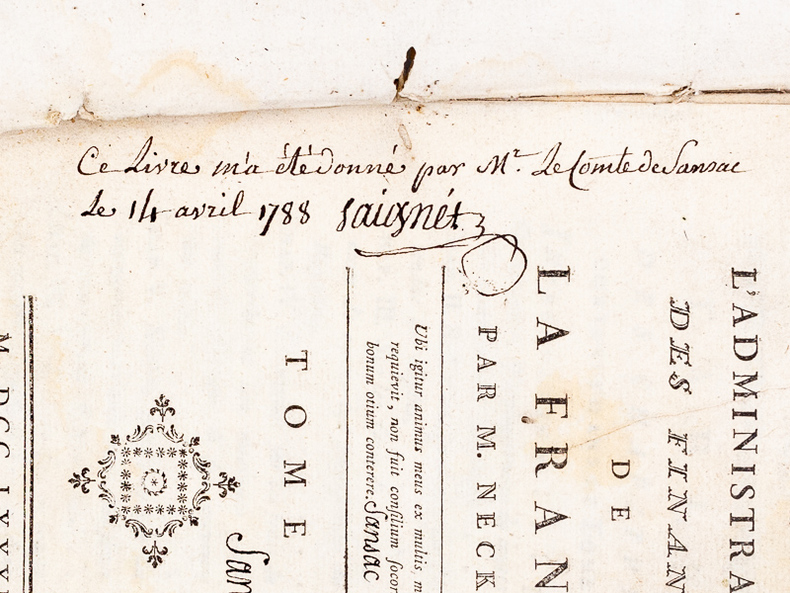 Ce Livre m'a été donné par Mr. Le Comte de Sansac
Le 14 avril 1788 Saignét
L'ADMINISTRA
DES FINAN
DE
LA FRAN
PAR M. NECK
Ubi igitur animus meus ex multis m
requievit, non fuit consilium socor
bonum otium conterere. Sansac
TOME
San
M. DCC. LXXX